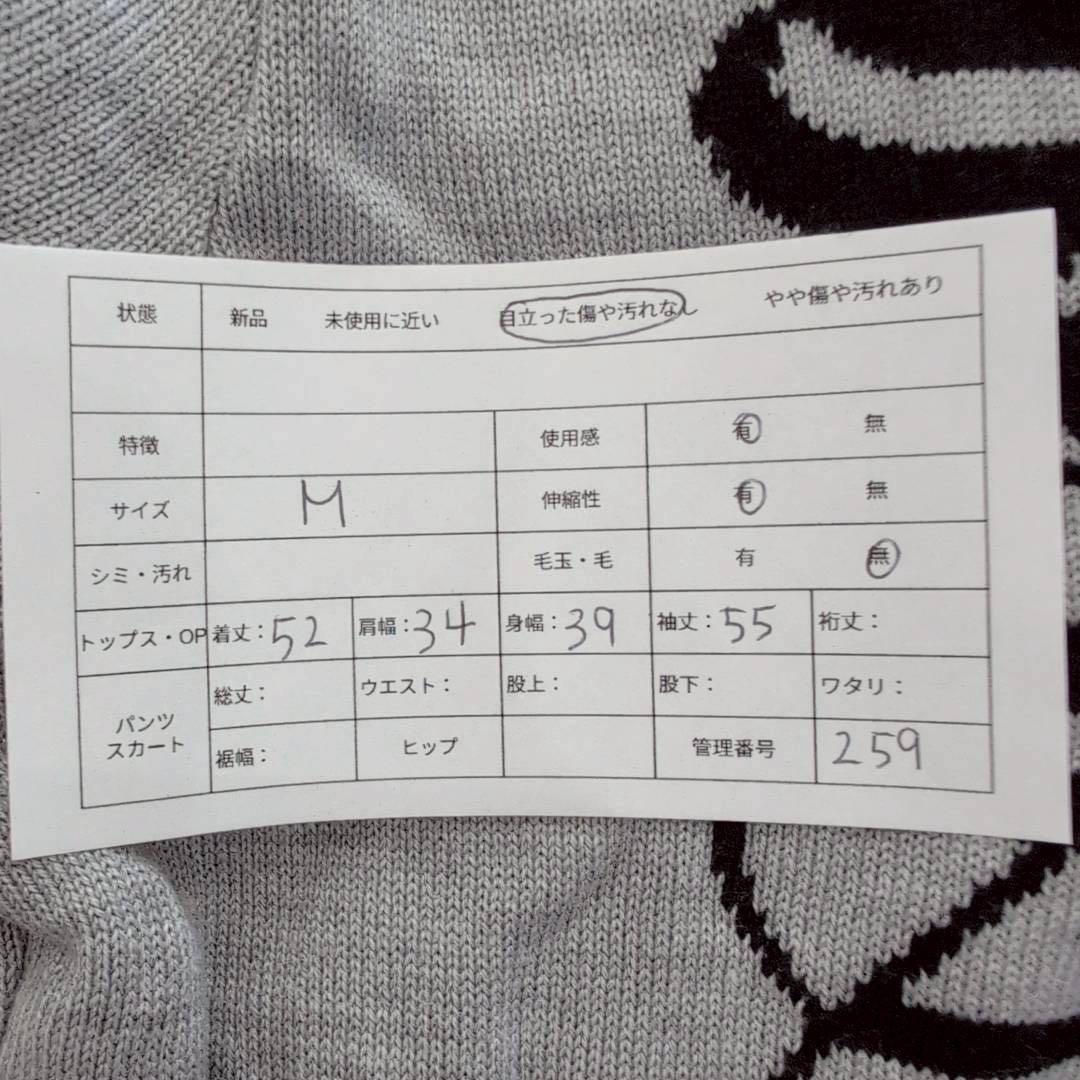 状態 新品 未使用に近い 目立った傷や汚れなし やや傷や汚れあり
特徴 使用感 有 無
サイズ M 伸縮性 有 無
シミ・汚れ 毛玉・毛 有 無
トップス・OP 着丈：52 肩幅：34 身幅：39 袖丈：55 裄丈：
パンツ スカート 総丈： ウエスト： 股上： 股下： ワタリ：
裾幅： ヒップ 管理番号 259